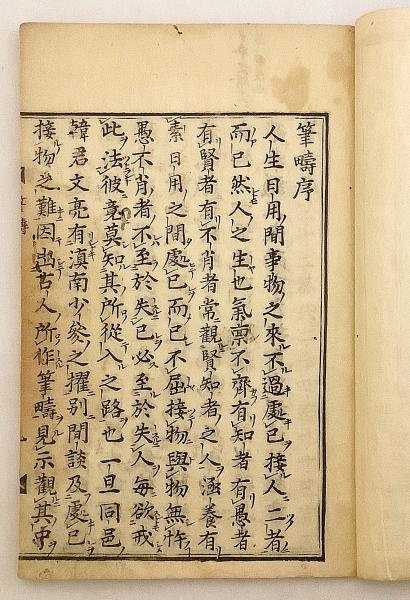 筆疇序
人生日用間事物之來不過處己接人二者
而已然人之生也氣稟不齊有知者有愚者
有賢者有不肖者常觀賢知者之人涵養有
素日用之間處己而己不屈接物與物無忤
愚不肖者不至於失己必至於失人每欲戒
此法彼竟莫知其所從入之路也一旦同邑
韓君文亮有滇南少參之擢別間談及處己
接物之難因出古人所作筆疇見示觀其中